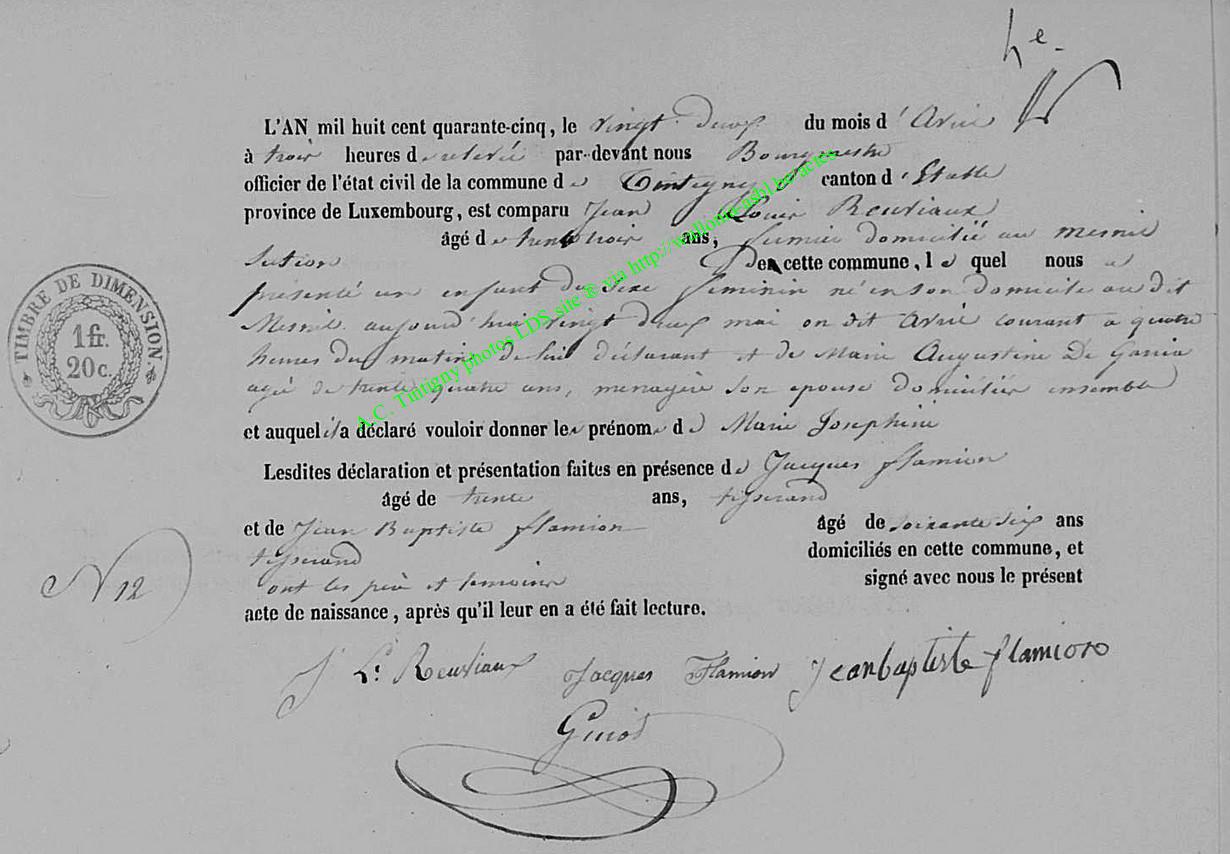 he.
L'AN mil huit cent quarante-cinq, le vingt deux du mois d'Avril
à trois heures de relevée par-devant nous Bourgmestre
officier de l'état civil de la commune de Tintigny canton d'Etalle
province de Luxembourg, est comparu Jean Louis Reuviaux
âgé de trente trois ans, domicilié au mesnil
section de cette commune, lequel nous a
présenté un enfant du sexe feminin né en son domicile au dit
Mesnil aujourd'hui vingt deux mai on dit Avril courant a quatre
heures du matin de lui déclarant et de Marie Augustine De
agé de trente quatre ans, menagère son epouse domiciliés ensemble
et auquel il a déclaré vouloir donner les prénoms de Marie Josephine
Lesdites déclaration et présentation faites en présence de Jacques flamion
âgé de trente ans, tisserand
et de Jean Baptiste flamion âgé de soixante six ans
tisserand domiciliés en cette commune, et
ont les père et temoins signé avec nous le présent
acte de naissance, après qu'il leur en a été fait lecture.
N 12
TIMBRE DE DIMENSION
1 fr.
20 c.
J L. Reuviaux Jacques Flamion Jeanbaptiste flamion
A.C. Tintigny photos LDS site ® via http://wallonicasbl.be/actes